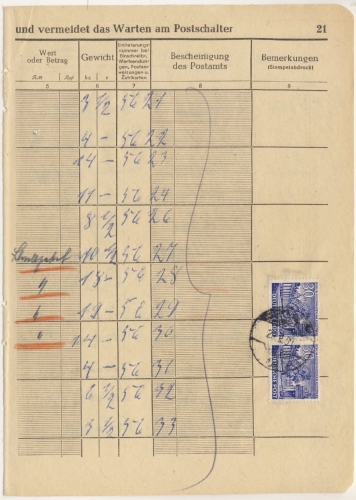 und vermeidet das Warten am Postschalter 21
Wert oder Betrag Gewicht Einlieferungsnummer bei Einschreib-, Wertsendungen, Postanweisungen u. Zahlkarten Bescheinigung des Postamts Bemerkungen (Stempelabdruck)
5 6 7 8 9
3 1/2 56 21
4 — 56 22
14 — 56 23
11 — 56 24
8 1/2 56 26
10 1/2 56 27
13 — 56 28
12 — 56 29
14 — 56 30
4 — 56 31
6 1/2 56 32
3 1/2 56 33